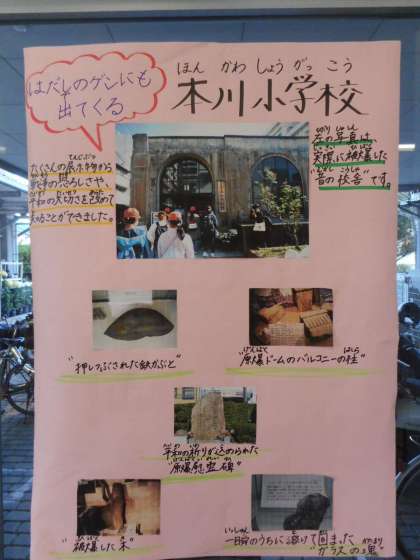 はだしのゲンにも
出てくる
ほん かわ しょう がっ こう
本川小学校
たくさんの展示物から
てんじぶつ
戦争の恐ろしさや、
平和の大切さを改めて
知ることができました。
左の写真は、
実際に被爆した
"昔の校舎"です。
"押しつぶされた鉄かぶと"
げんばく
はしら
"原爆ドームのバルコニーの柱"
平和の祈りが込められた
"原爆慰霊碑"
"被爆した木"
いっしゅん
一瞬のうちに溶けて固まった
かたまり
"ガラスの塊"